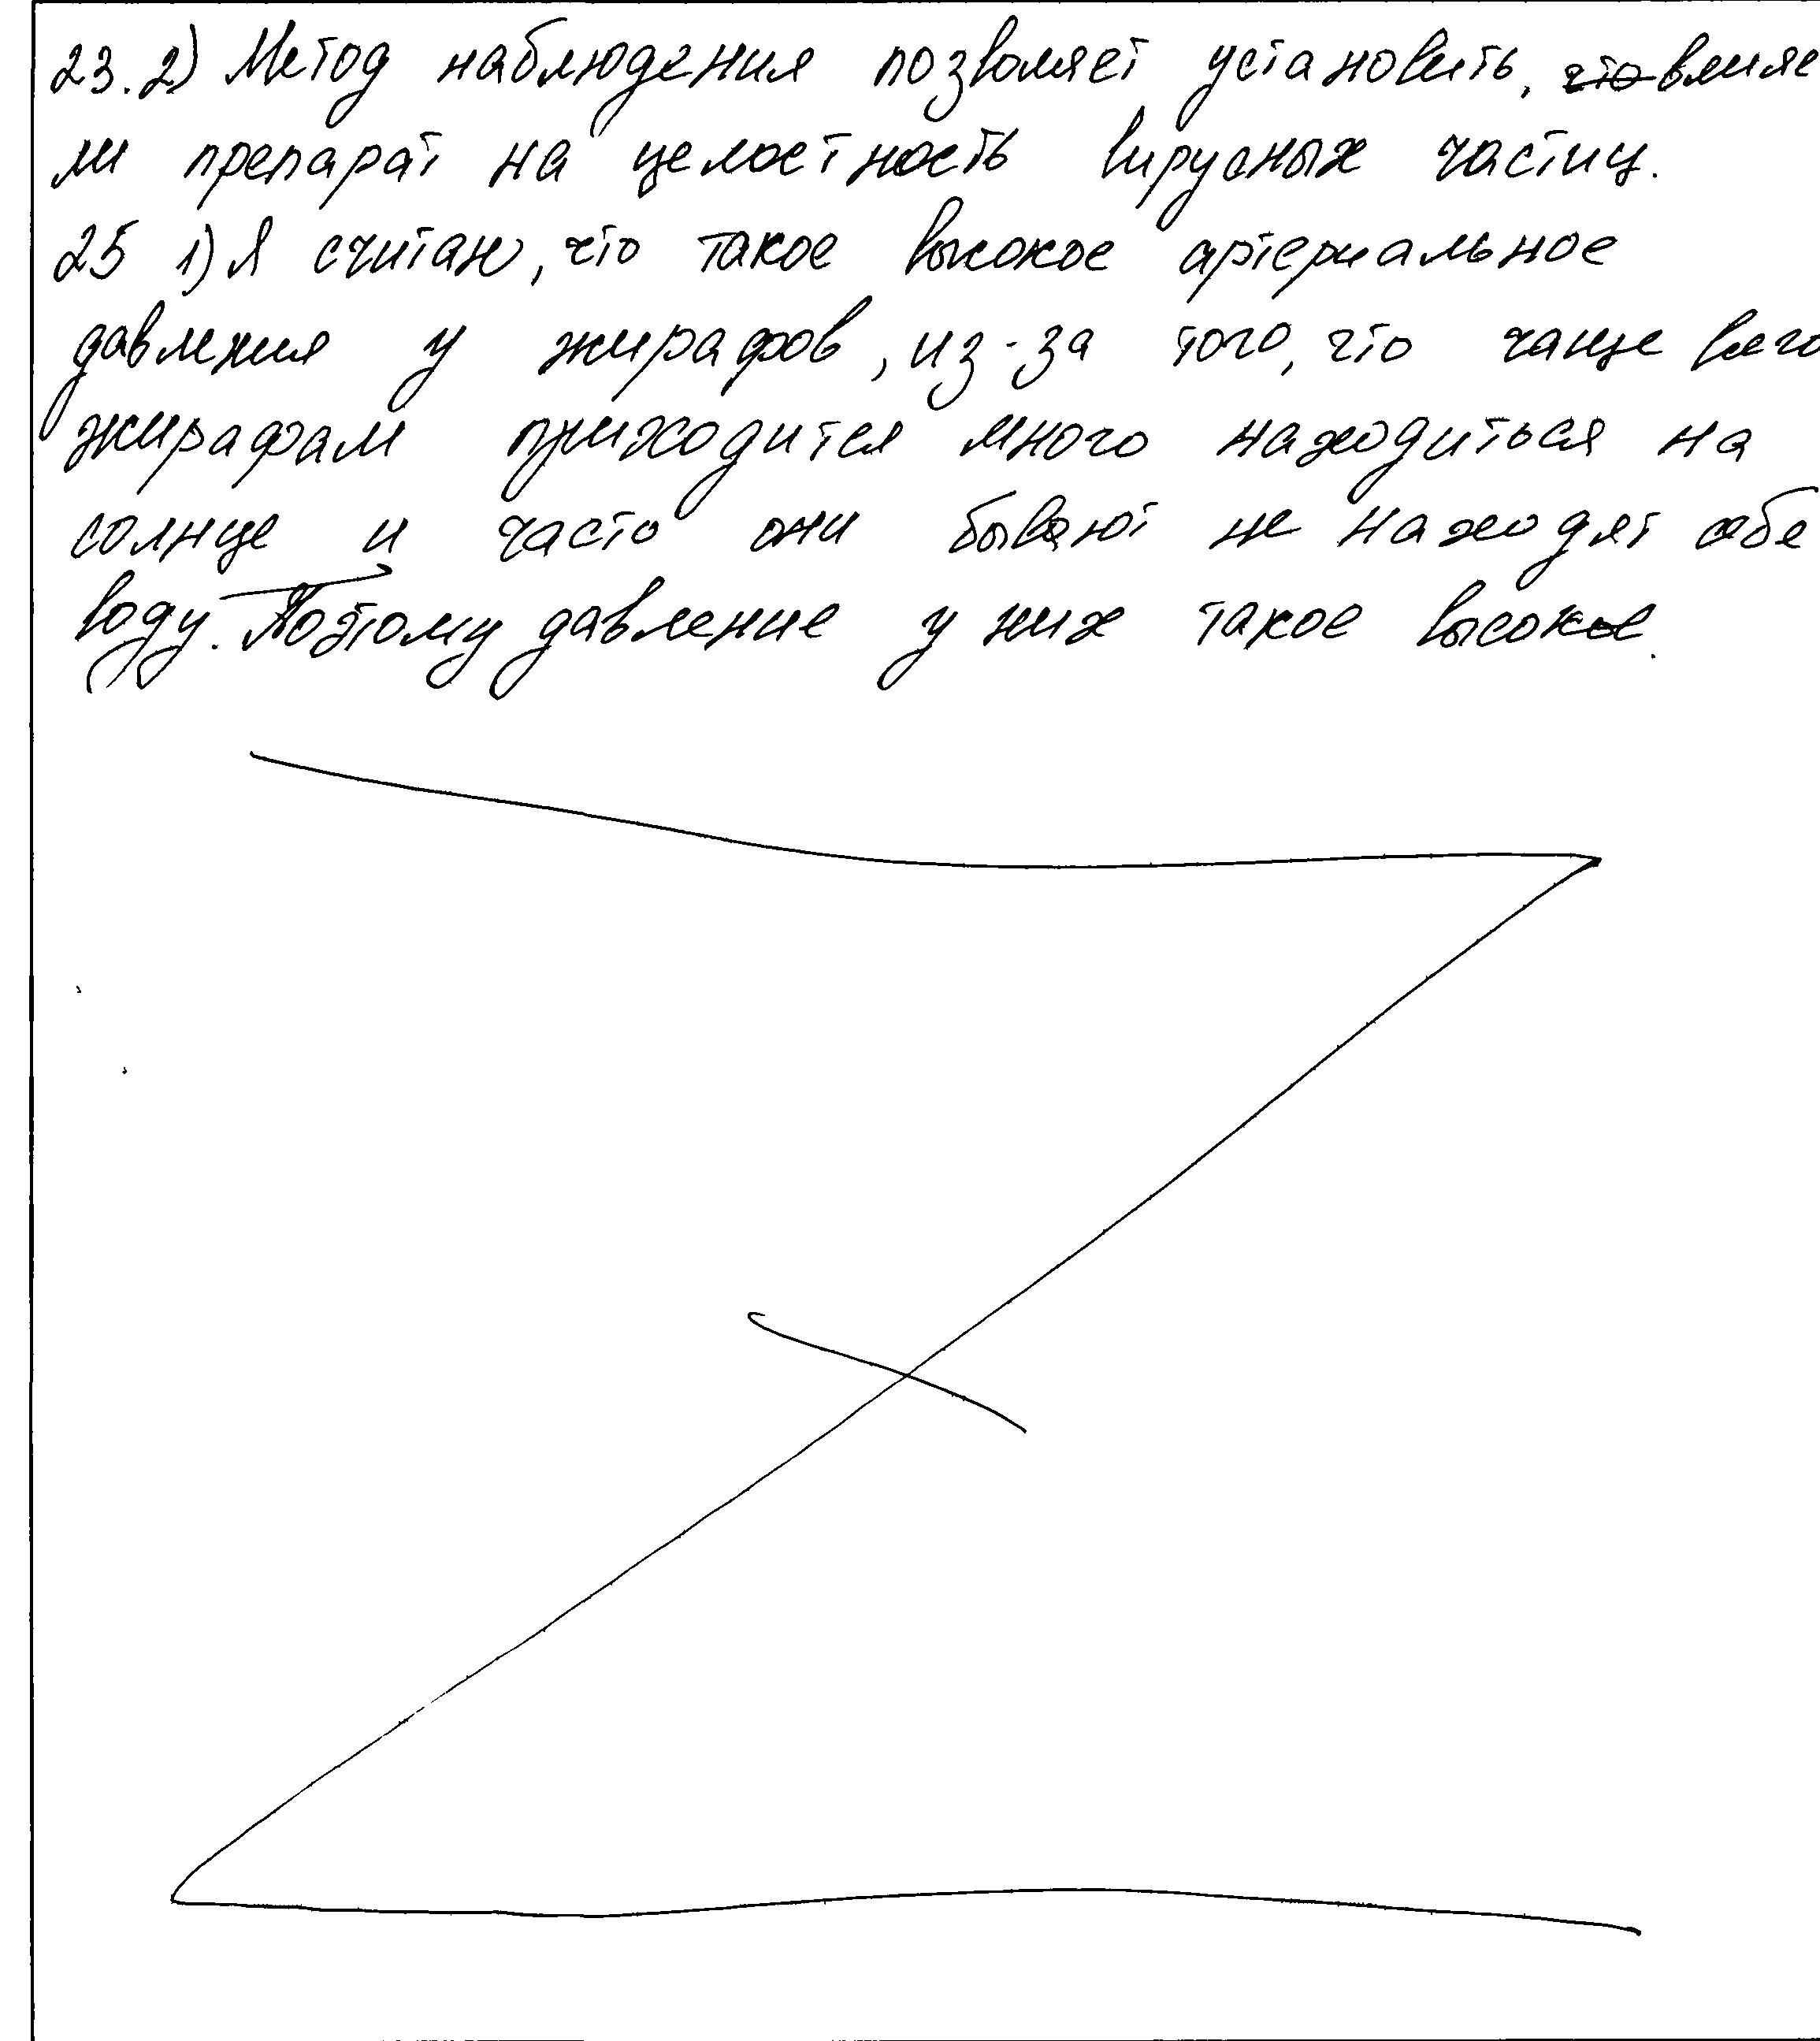 23. 2) Метод наблюдения позволяет установить, что влияе
ли препарат на целостность вирусных частиц.
25 1) Я считаю, что такое высокое артериальное
давления у жирафов, из-за того, что чаще всего
жирафам приходится много находиться на
солнце и часто они бывают не находят себе
воду. Поэтому давление у них такое высокое.